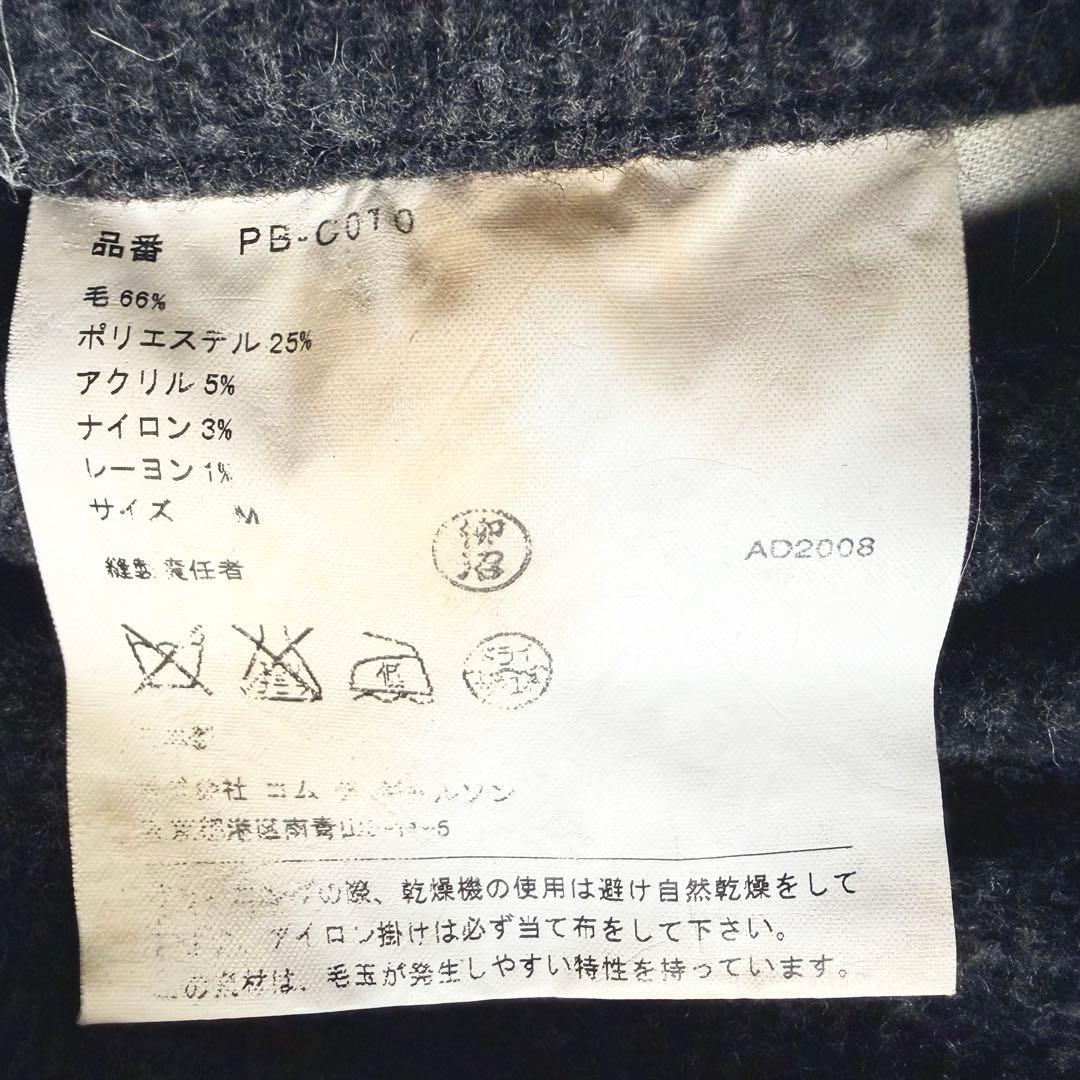 品番 PB-C010
毛 66%
ポリエステル 25%
アクリル 5%
ナイロン 3%
レーヨン 1%
サイズ M
縫製 責任者 柳沼
AD2008
低
ドライ
会社 コム ギャルソン
港区南青山
の際、乾燥機の使用は避け自然乾燥をして
アイロン掛けは必ず当て布をして下さい。
の素材は、毛玉が発生しやすい特性を持っています。